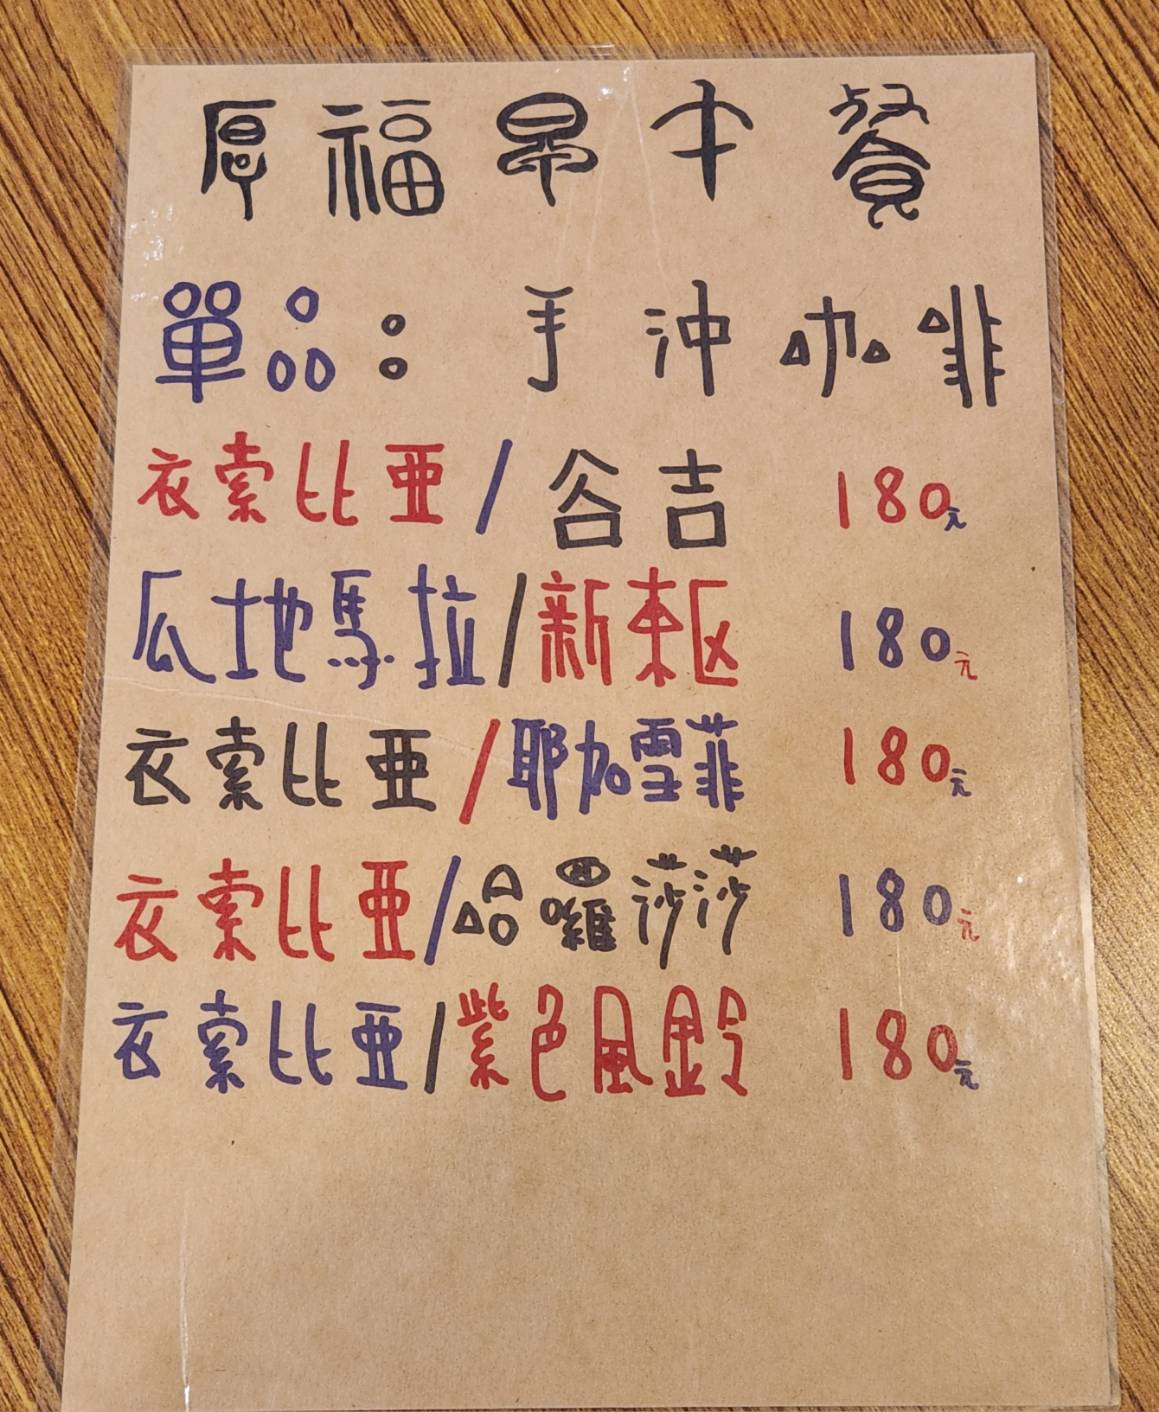 厚福早午餐
單品：手沖咖啡
衣索比亞/谷吉 180元
瓜地馬拉/新東區 180元
衣索比亞/耶加雪菲 180元
衣索比亞/哈囉莎莎 180元
衣索比亞/紫色風鈴 180元